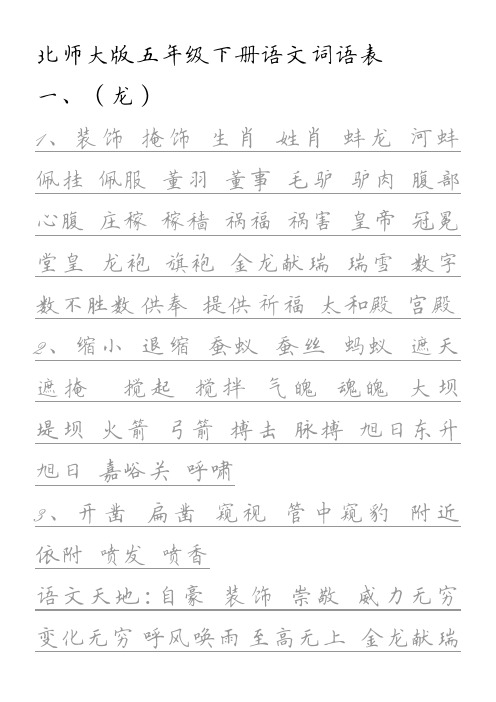 北师大版五年级下册语文词语表
一、（龙）
1、装饰 掩饰 生肖 姓肖 蚌龙 河蚌
佩挂 佩服 董羽 董事 毛驴 驴肉 腹部
心腹 庄稼 稼穑 祸福 祸害 皇帝 冠冕
堂皇 龙袍 旗袍 金龙献瑞 瑞雪 数字
数不胜数 供奉 提供 祈福 太和殿 宫殿
2、缩小 退缩 蚕蚁 蚕丝 蚂蚁 遮天
遮掩 搅起 搅拌 气魄 魂魄 大坝
堤坝 火箭 弓箭 搏击 脉搏 旭日东升
旭日 嘉峪关 呼啸
3、开凿 扁凿 窥视 管中窥豹 附近
依附 喷发 喷香
语文天地：自豪 装饰 崇敬 威力无穷
变化无穷 呼风唤雨 至高无上 金龙献瑞